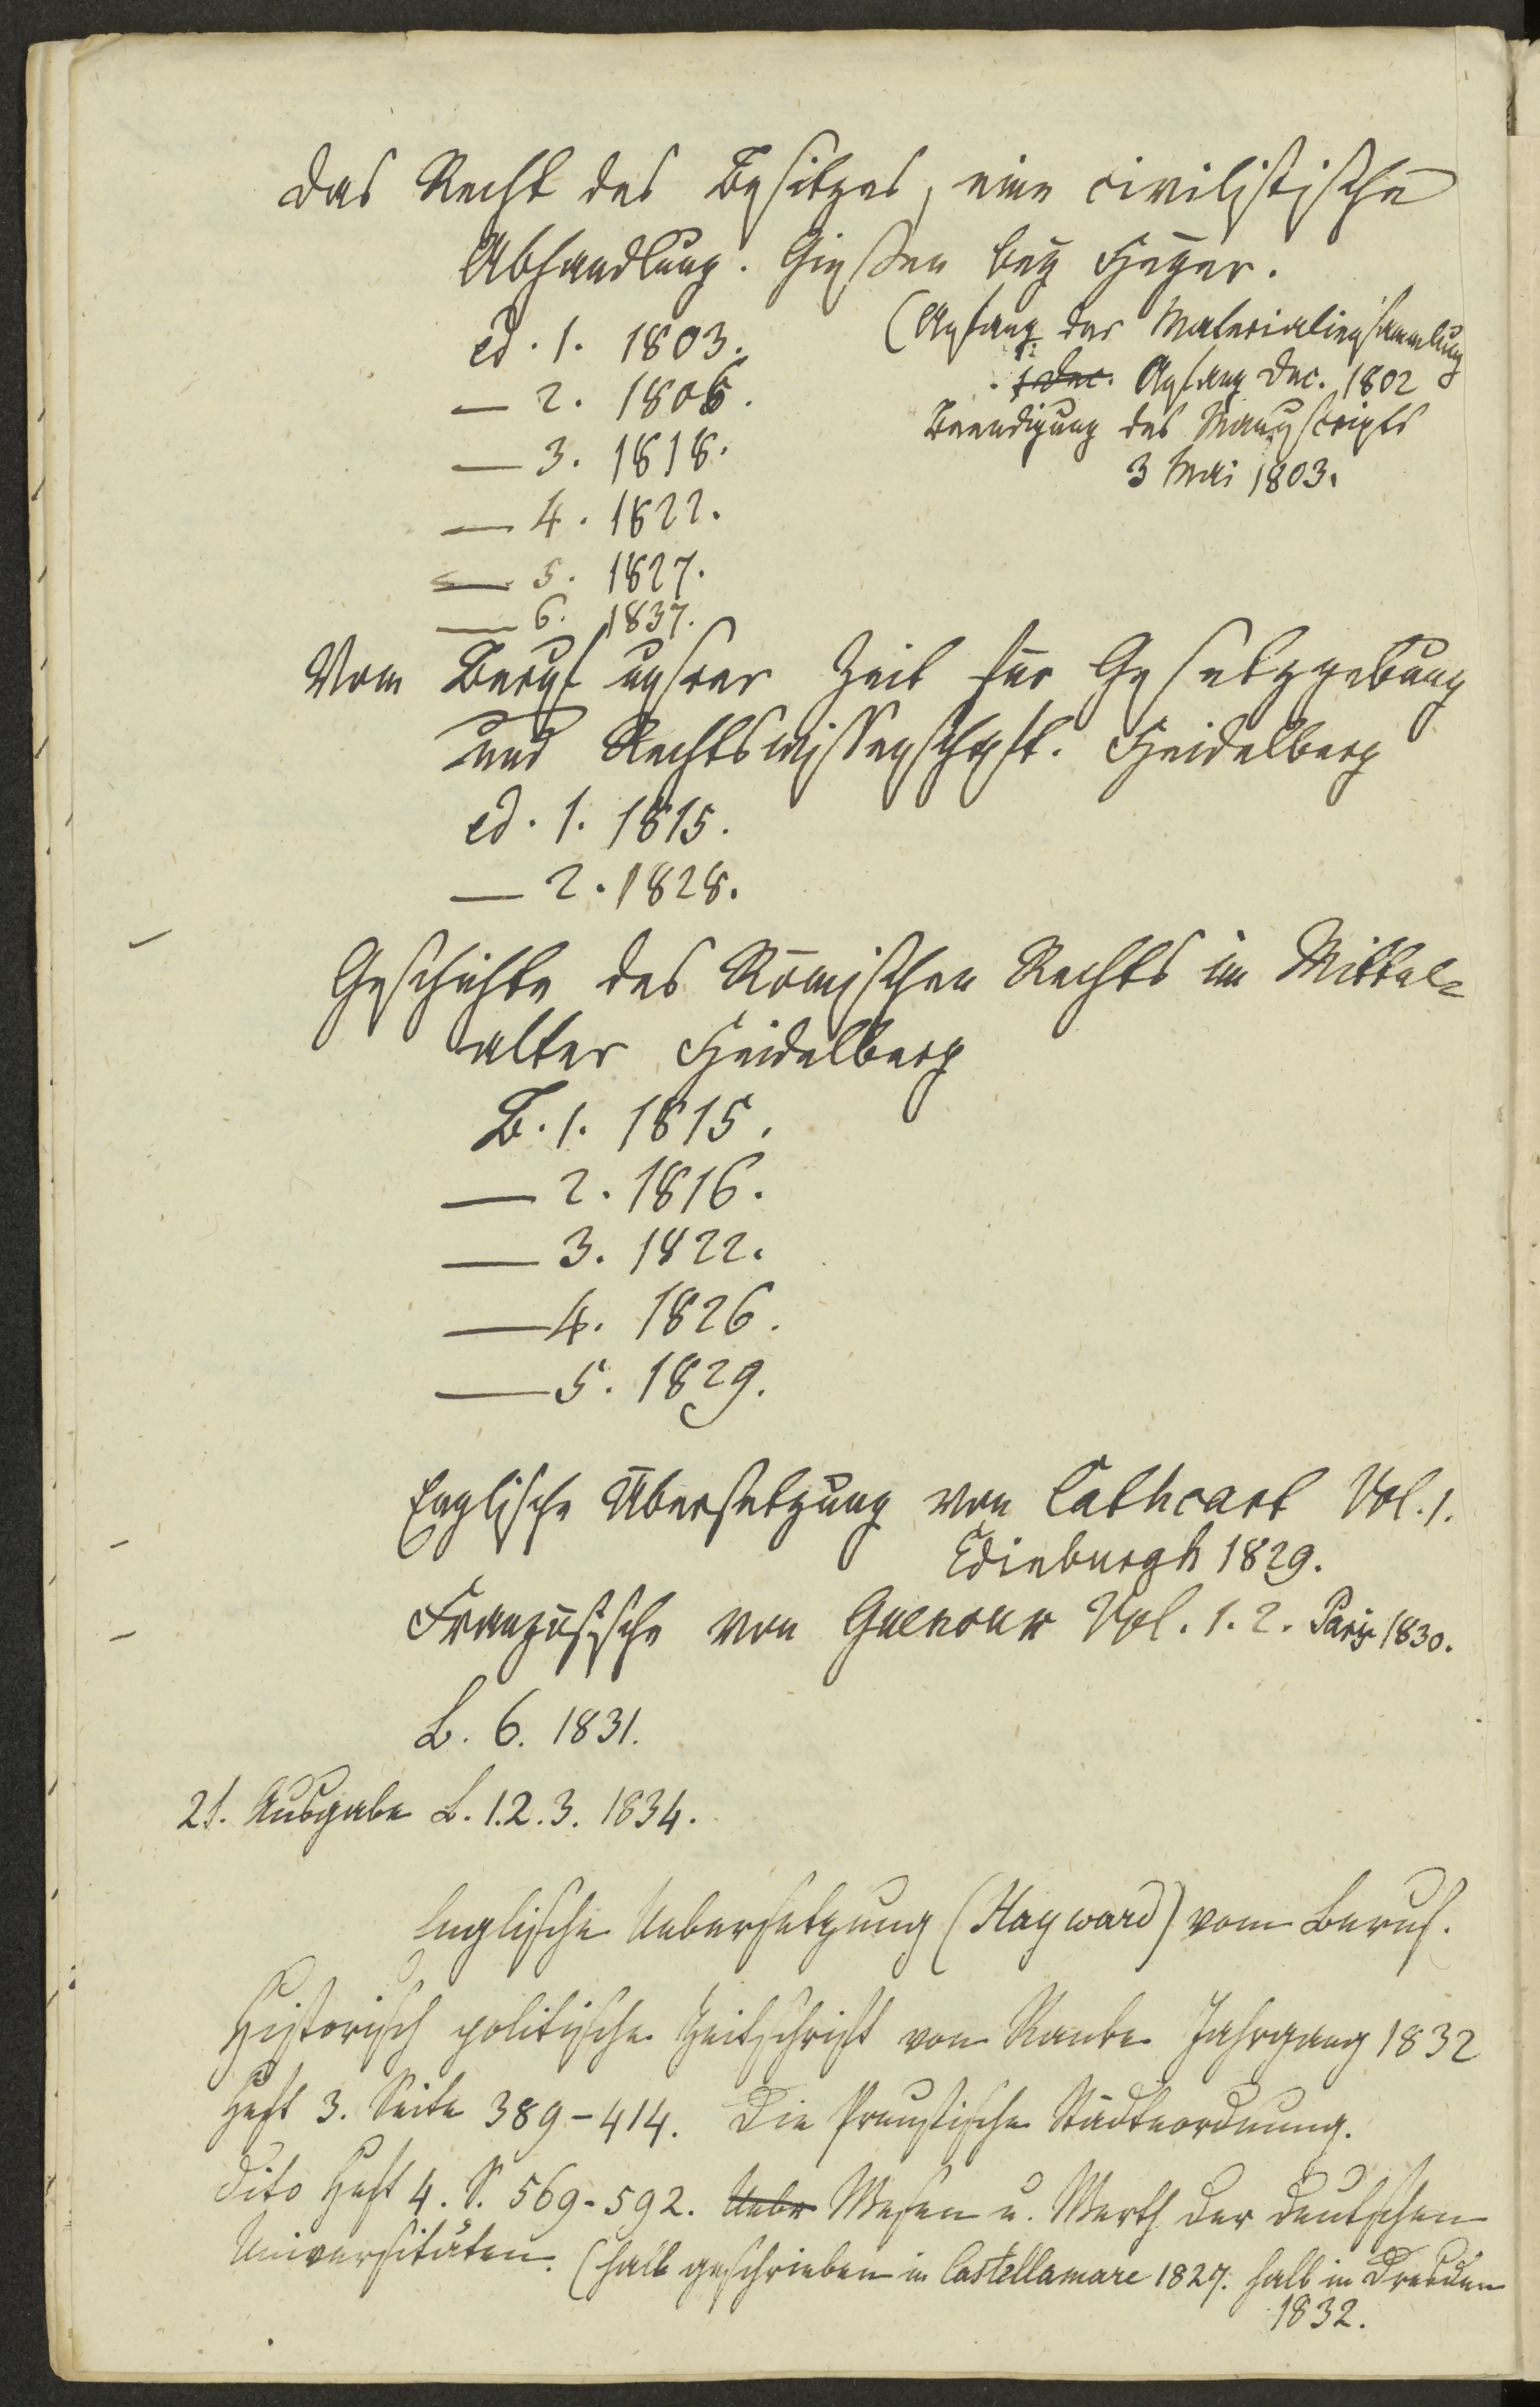 Das Recht des Besitzes, eine civilistische
Abhandlung. Gießen bey Heyer.
ed. 1. 1803.
(Anfang der Materialiensammlung
— 2. 1806.
1 Dec. Anfang Dec. 1802
Beendigung des Manuscripts
— 3. 1818.
3 Mai 1803.
— 4. 1822.
— 5. 1827.
— 6. 1837.
Vom Beruf unsrer Zeit für Gesetzgebung
und Rechtswissenschaft. Heidelberg
ed. 1. 1815.
— 2. 1828.
Geschichte des Römischen Rechts im Mittel=
alter Heidelberg
B. 1. 1815.
— 2. 1816.
— 3. 1822.
— 4. 1826.
— 5. 1829.
Englische Übersetzung von Cathcart Vol. 1.
Edinburgh 1829.
Französische von Guenoux Vol. 1. 2. Paris 1830.
B. 6. 1831.
2t. Ausgabe B. 1.2.3. 1834.
Englische Uebersetzung (Hayward) vom Beruf.
Historisch politische Zeitschrift von Ranke Jahrgang 1832
Heft 3. Seite 389-414. Die Preußische Städteordnung.
dito Heft 4. S. 569-592. Uebr Wesen u. Werth der deutschen
Universitäten. (halb geschrieben in Castellamare 1827. halb in Dresden
1832.